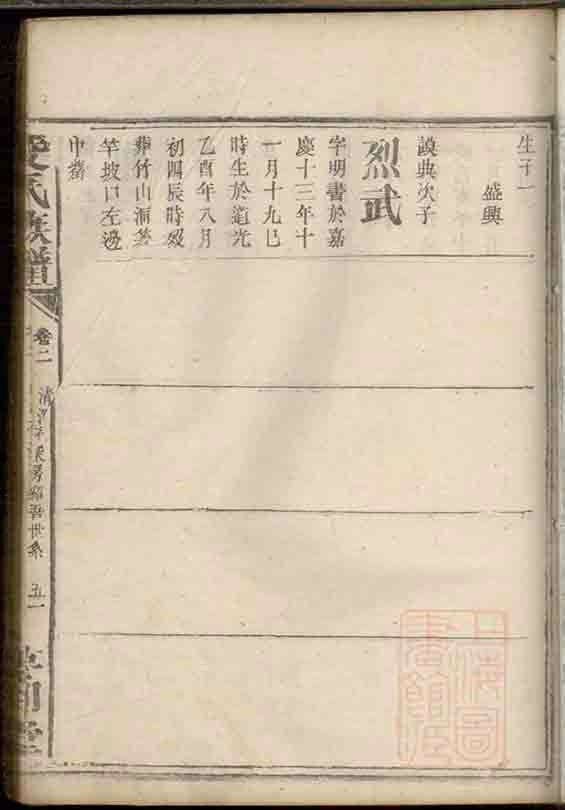 生子一
盛興
謨典次子
烈武
字明書於嘉
慶十三年十
一月十九巳
時生於道光
乙酉年八月
初四辰時歿
葬竹山洞茅
竿坡口左邊
申
氏族譜
卷二
世系 五一
上海圖書館藏